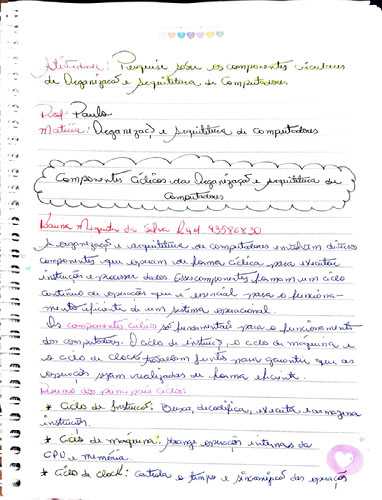 Atividade: Pesquise sobre os componentes circulares
de Organização e Arquitetura de Computadores
Prof: Paulo
Matéria: Organização e Arquitetura de computadores
Componentes Cíclicos da Organização e Arquitetura de
Computadores
da Silva
A organização e arquitetura de computadores envolvem diversos
componentes que operam de forma cíclica para executar
instruções e processar dados. Esses componentes formam um ciclo
contínuo de operações que é essencial para o funciona-
mento eficiente de um sistema operacional.
Os componentes cíclicos são fundamentais para o funcionamento
dos computadores. O ciclo de instrução, o ciclo de máquina e
o ciclo de clock trabalham juntos para garantir que as
operações sejam realizadas de forma eficiente.
Resumo dos principais ciclos:
* Ciclo de Instrução: Busca, decodifica, executa e armazena
instruções.
* Ciclo de máquina: abrange operações internas da
CPU e memória.
* Ciclo de clock: controla o tempo e sincronização das operações